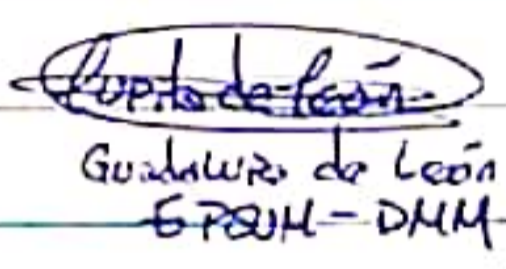 Lupita de León
Guadalupe de León
EPSUM - DMM